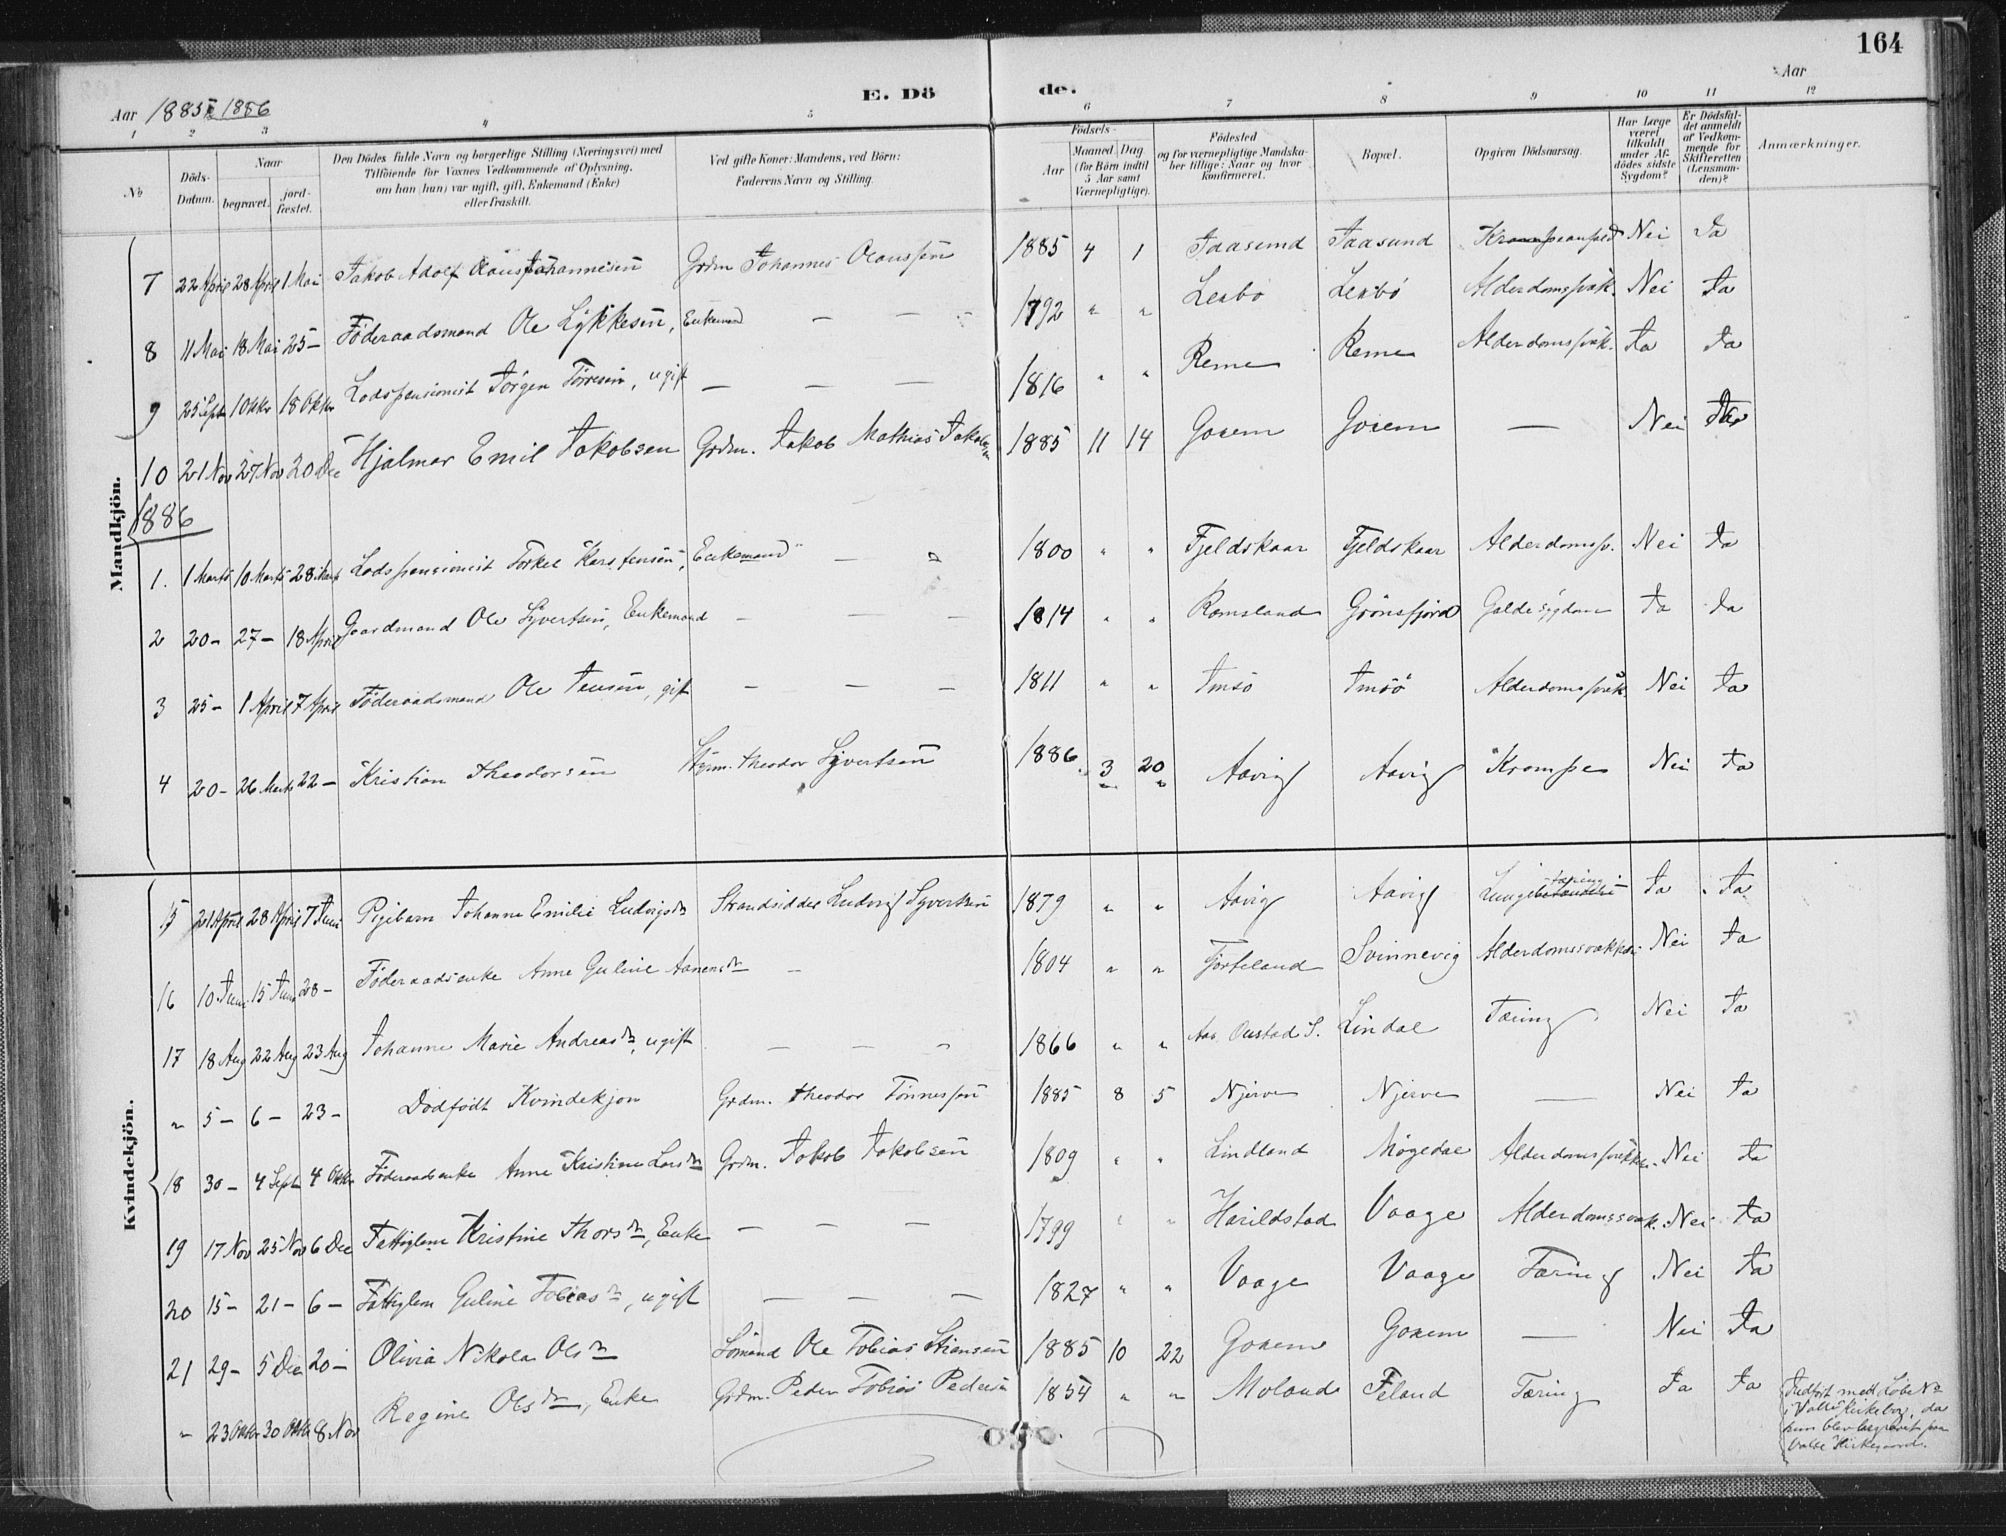 164
Aar 1885 & 1886 E. Dö de. Aar
1 2 3 4 5 6 7 8 9 10 11 12
№ Döds-Datum. Naar begravet. jord-fæstet. Den Dödes fulde Navn og borgerlige Stilling (Næringsvei) med Tilföiende for Voxnes Vedkommende af Oplysning, om han (hun) var ugift, gift, Enkemand (Enke) eller fraskilt. Ved gifte Koner: Mandens, ved Börn: Faderens Navn og Stilling. Födsels- Aar Maaned. Dag. (for Börn indtil 5 Aar samt Værnepligtige). Födested og for værnepligtige Mandskaber tillige: Naar og hvor konfirmeret. Bopæl. Opgiven Dödsaarsag. Har Læge været tilkaldt under Afdödes sidste Sygdom? Er Dödsfaldet anmeldt af Vedkommende for Skifteretten (Lensmanden)? Anmærkninger.
Mandkjön.
7 22 April 28 April 1 Mai Jakob Adolf Olaus Johannesen Grdm Johannes Olaussen 1885 4 1 Taasund Taasund Nei Ja
8 11 Mai 18 Mai 25 – Föderaadsmand Ole Lykkesen, Enkemand – – – 1792 " " Lenbo Lenbö Alderdomssvæk. Nei Ja
9 25 Sept 1 Oktr 18 Oktr Lodspensionist Jörgen Törresen, ugift – – – 1816 " " Reme Reme Alderdomssvæk. Ja Ja
10 21 Nov 27 Nov 20 Dec Hjalmar Emil Jakobsen Grdm. Jakob Mathias Jakobsen 1885 11 14 Goxem Goxem — Nei Ja
1886
1. 1 Marts 10 Marts 28 Marts Lodspensionist Torkel Karstensen, Enkemand – " 1800 " " Fjeldskaar Fjeldskaar Alderdomssv. Nei Ja
2 20 – 27 – 18 April Gaardmand Ole Syvertsen, Enkemand – – – 1814 " " Ramsland Grönsfjord Galdesygdom Ja Ja
3 25 – 1 April 7 April Föderaadsmand Ole Jensen, gift – – – 1811 " " Imsö Imsö Alderdomssvæk. Nei Ja
4 20 – 26 Marts 22 – Kristian Theodorsen Theodor Syvertsen 1886 3 20 Aavig Aavig Krampe Nei Ja
Kvindekjön.
15 21 April 28 April 7 Juni Pigebarn Johanne Emilie Ludvigsdr Strandsidder Ludvig Syvertsen 1879 " " Aavig Aavig Lungetæring Ja Ja
16 10 Juni 15 Juni 28 – Föderaadsenke Anne Guline Aanensdr – 1804 " " Fjorteland Svinnevig Alderdomssvækkel. Nei Ja
17 18 Aug 22 Aug 23 Aug Johanne Marie Andreasdr, ugift – – – 1866 " " Lindal Tæring Nei Ja
" 5 – 6 – 23 – Dödfödt Kvindekjön Grdm. Theodor Tönnessen 1885 8 5 Njerve Njerve — Nei Ja
18 30 – 4 Sept 4 Oktr Föderaadsenke Anne Kristine Larsdr Grdm. Jakob Jakobsen 1809 " " Lindland Møgedal Alderdomssvækkel. Nei Ja
19 17 Nov 25 Nov 6 Dec Fattiglem Kristine Thorsdr, Enke – – – 1799 " " Harildstad Vaage Alderdomssvæk. Nei Ja
20 15 – 21 – 6 – Fattiglem Guline Tobiasdr, ugift – – – 1827 " " Vaage Vaage Tæring Nei Ja
21 29 – 5 Dec 20 – Olivia Nikolea Olsdr Sömand Ole Tobias Stiansen 1885 10 22 Goxem Goxem — Nei Ja
" 23 Oktr 30 Oktr 8 Nov Regine Olsdr, Enke Grdm. Peder Tobias Pedersen 1854 " " Moland Föland Tæring Ja Ja Indfört med Löbe No
i Valle Kirkebog, da
hun blev begravet paa
Valle Kirkegaard.